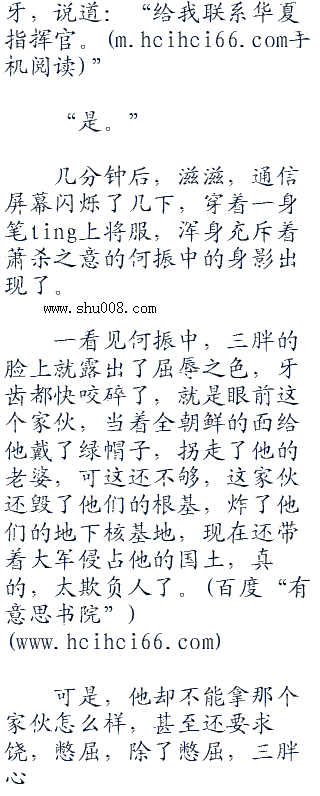 牙，说道：“给我联系华夏
指挥官。(m.hcihci66.com手
机阅读)”
“是。”
几分钟后，滋滋，通信
屏幕闪烁了几下，穿着一身
笔ting上将服，浑身充斥着
萧杀之意的何振中的身影出
现了。
www.shu008.com
一看见何振中，三胖的
脸上就露出了屈辱之色，牙
齿都快咬碎了，就是眼前这
个家伙，当着全朝鲜的面给
他戴了绿帽子，拐走了他的
老婆，可这还不够，这家伙
还毁了他们的根基，炸了他
们的地下核基地，现在还带
着大军侵占他的国土，真
的，太欺负人了。(百度“有
意思书院”)
(www.hcihci66.com)
可是，他却不能拿那个
家伙怎么样，甚至还要求
饶，憋屈，除了憋屈，三胖
心